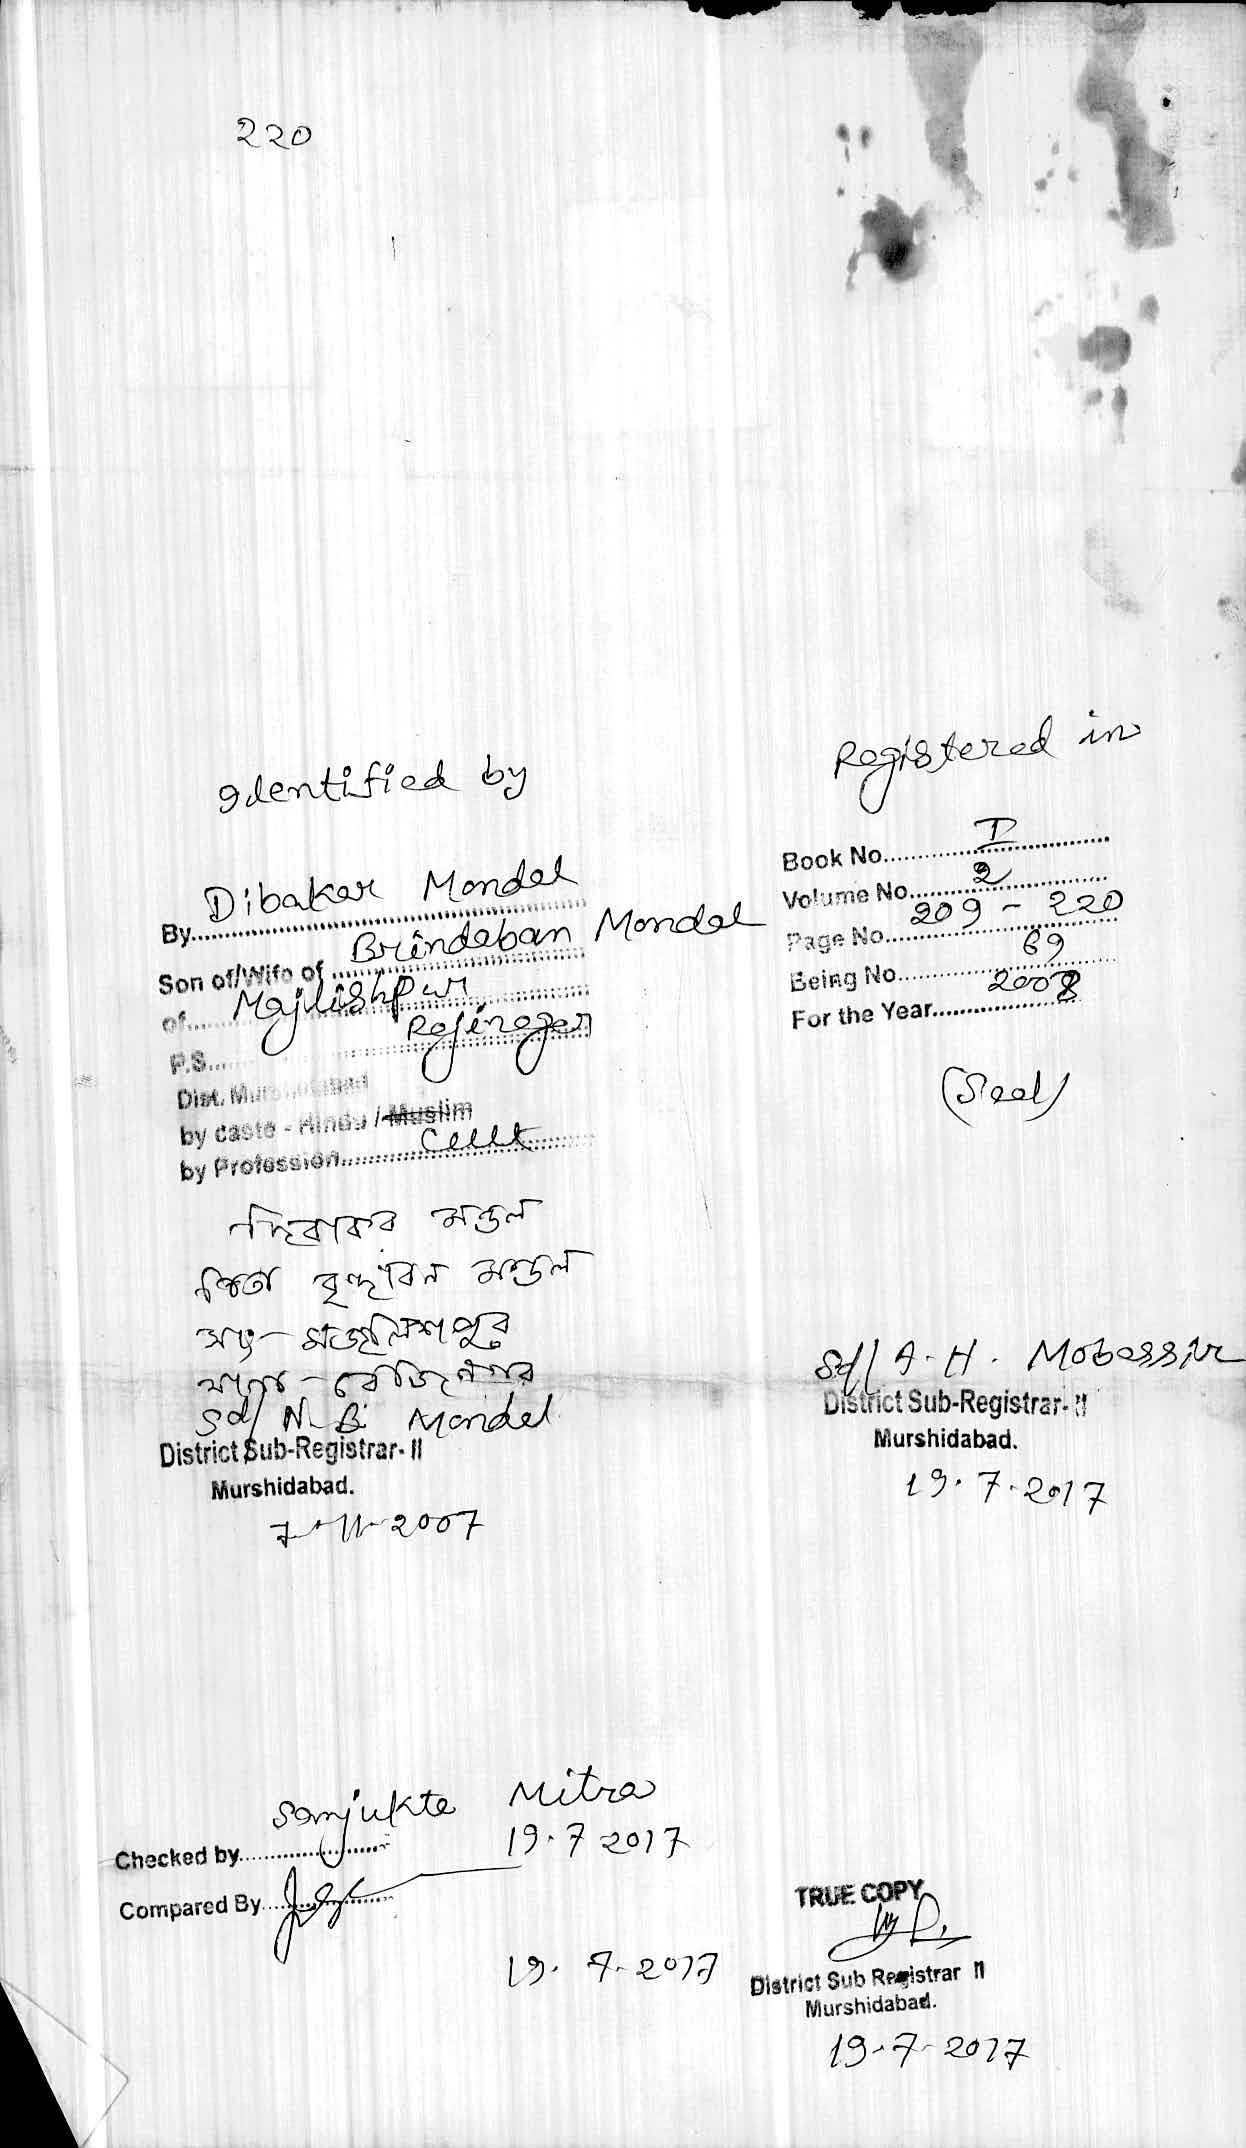 220
Identified by
By Dibakar Mondal
Son of/Wife of Brindaban Mondal
of Majlishpur
P.S. Rejinagar
Dist. Murshidabad
by caste - Hindu / Muslim
by Profession Cult
দিবাকর মন্ডল
পিতা বৃন্দাবন মন্ডল
সাং - মজলিশপুর
থানা - রেজিনগর
Sd/ N. B. Mondal
District Sub-Registrar- II
Murshidabad.
7-11-2007
Registered in
Book No. I
Volume No. 2
Page No. 209 - 220
Being No. 69
For the Year 2008
(Seal)
Sd/ A. H. Mobassir
District Sub-Registrar- II
Murshidabad.
19.7.2017
Sanjukta Mitra
Checked by 19.7 2017
Compared By
19.7.2017
TRUE COPY
District Sub Registrar II
Murshidabad.
19.7.2017